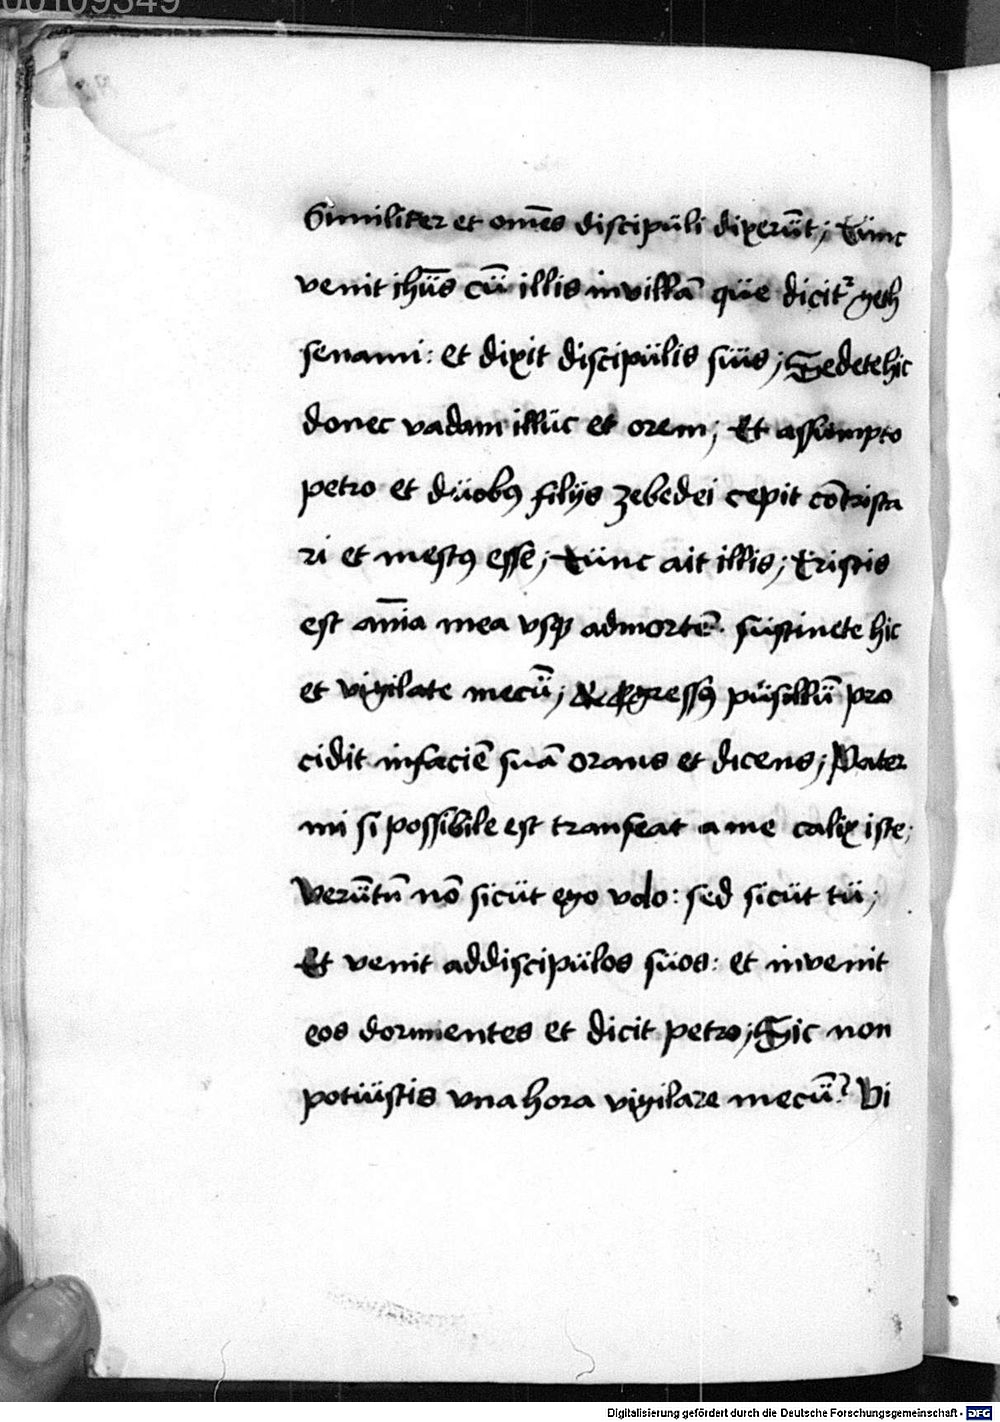 00109349
Similiter et om̄es discipüli dixerūt; Tünc
venit ihūs cū illis in villā qüe dicitr geth
senami: et dixit discipülis süis; Sedete hic
donec vadam illüc et orem; Et assümpto
petro et düobꝰ filijs zebedei cepit cōtrista
ri et mestꝰ esse; Tünc ait illis; Tristis
est aīa mea vsqꝫ ad mortē. süstinete hic
et vigilate mecū; Et ꝓgressꝰ püsillū pro
cidit in faciē suā orans et dicens; Pater
mi si possibile est transeat a me calix iste;
Verūtn̄ nō sicüt ego volo: sed sicüt tü;
Et venit ad discipülos süos: et invenit
eos dormientes et dicit petro; Sic non
potüistis vna hora vigilare mecū? Vi
Digitalisierung gefördert durch die Deutsche Forschungsgemeinschaft - DFG